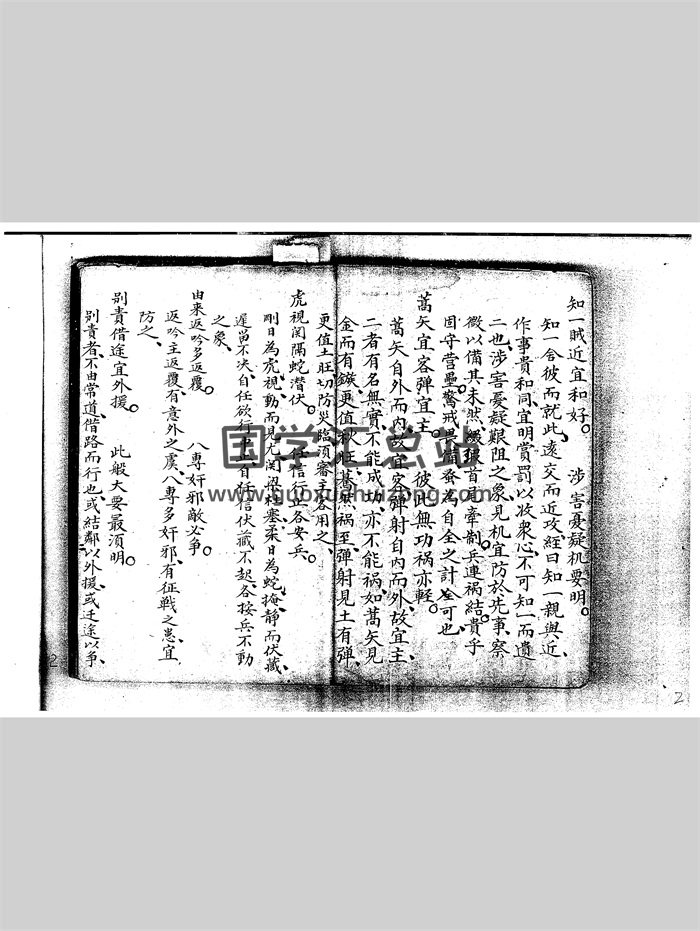 知一賊近宜和好。　涉害憂疑机要明。
知一舍彼而就此、遠交而近攻、經曰知一親與近、
作事貴和同、宜明賞罰以收衆心、不可知一而遺
二也、涉害憂疑艱阻之象、見机宜防於先事、察
微以備其未然、首尾牽制、兵連禍結、貴乎
固守营壘、驚戒畏慎、為自全之計、可也
蒿矢宜客彈宜主。　彼此無功禍亦輕。
蒿矢自外而内、故宜客、彈射自内而外、故宜主、
二者有名無實、不能成功、亦不能禍、如蒿矢見
金而有鏃、更值秋旺、驀然禍至、彈射見土有弹、
更值土旺、切防災、臨須審主客用之、
虎視関隔蛇潛伏。　任信行止各安兵。
剛日為虎視、動而見尤、関梁杜塞、柔日為蛇掩、静而伏藏、
遲留不决、自任欲行中止、自信伏藏不起、各按兵不動
之象、
由来返吟多返覆。　八專奸邪敵必爭。
返吟主返覆、有意外之虞、八專多奸邪、有征戰之患、宜
防之、
别責借途宜外援。　此般大要最須明。
别責者、不由常道、借路而行也、或結鄰以外援、或迂途以争、
国学汇总站
www.guoxuehuizong.com
2
2